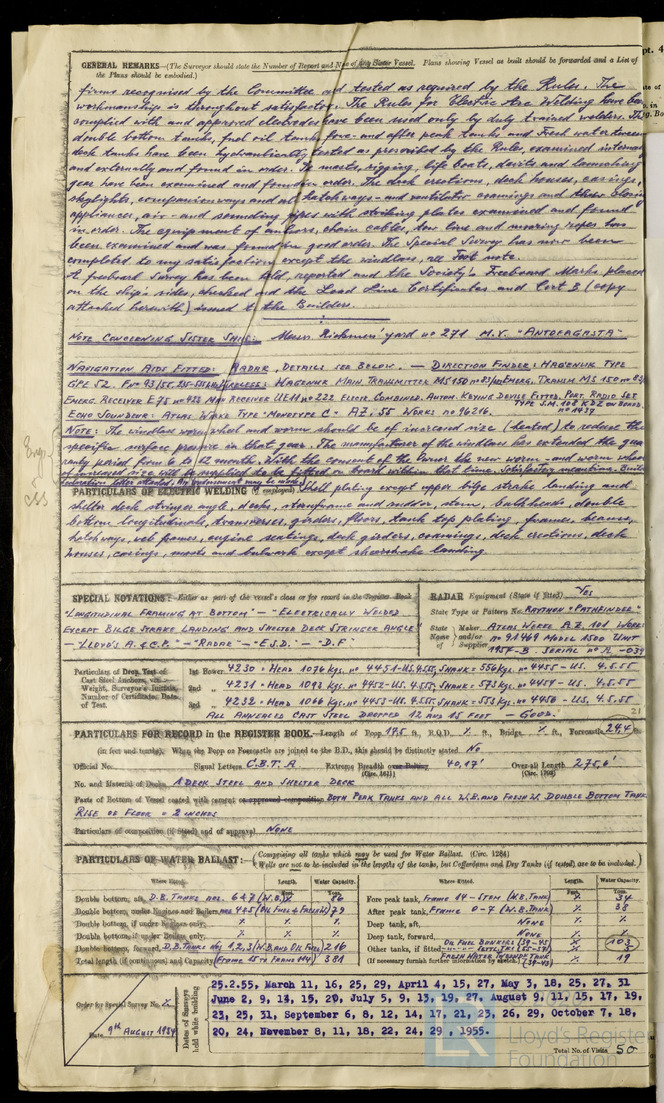 GENERAL REMARKS—(The Surveyor should state the Number of Report and Name of any Sister Vessel. Plans showing Vessel as built should be forwarded and a List of
the Plans should be embodied.)
firms recognised by the Committee and tested as required by the Rules. The
workmanship is throughout satisfactory. The Rules for Electric Arc Welding have been
complied with and approved electrodes have been used only by duly trained welders. The
double bottom tanks, fuel oil tanks, fore- and after peak tanks and Fresh water tween
deck tanks have been hydraulically tested as prescribed by the Rules, examined internally
and externally and found in order. The masts, rigging, life boats, davits and launching
gear have been examined and found in order. The deck erections, deck houses, casings,
skylights, companion ways and all hatchways- and ventilator coamings and their closing
appliances, air- and sounding pipes with striking plates examined and found
in order. The equipment of anchors, chain cables, tow line and mooring ropes has
been examined and was found in good order. The Special Survey has now been
completed to my satisfaction, except the windlass, see Foot note.
A freeboard Survey has been held, reported and the Society's Freeboard Marks placed
on the ship's sides, checked and the Load Line Certificates and Cert B (copy
attached herewith) issued to the Builders.
NOTE CONCERNING SISTER SHIP: Messrs Rickmers' yard no 271 M.V. "ANTOFAGASTA"
NAVIGATION AIDS FITTED: RADAR, DETAILS SEE BELOW. — DIRECTION FINDER: HAGENUK TYPE
GPE 52. HAGENUK MAIN TRANSMITTER MS 150 EMERG. TRANSM. MS 150
EMERG. RECEIVER E75 no 422 MAIN RECEIVER UEH no 222 ELECTR. COMBINED. AUTOM. KEYING DEVICE FITTED. PORT. RADIO SET
TYPE S.M. 108 KDZ ON BOARD.
ECHO SOUNDER: ATLAS WERKE TYPE "MONOTYPE C" AZ. 55 WORKS no 96216. no 1437
NOTE: The windlass worm wheel and worm should be of increased size (heated) to reduce the
specific surface pressure in that gear. The manufacturer of the windlass has extended the gua-
ranty period from 6 to 12 months. With the consent of the Owner the new worm- and worm wheel
of increased size will be supplied to be fitted on board within that time. Satisfactory meantime. Builders
declaration letter attached.
PARTICULARS OF ELECTRIC WELDING (if employed) Shell plating except upper bilge strake landing and
shelter deck stringer angle, decks, sternframe and rudder, stem, bulkheads, double
bottom longitudinals, transverses, girders, floors, tank top plating, frames, beams,
hatchways, web frames, engine seatings, deck girders, coamings, deck erections, deck
houses, casings, masts and bulwark except sheerstrake landing
SPECIAL NOTATIONS:—Either as part of the vessel's class or for record in the Register Book
"LONGITUDINAL FRAMING AT BOTTOM" — "ELECTRICALLY WELDED
EXCEPT BILGE STRAKE LANDING AND SHELTER DECK STRINGER ANGLE"
— "LLOYD'S A. & C.P." — "RADAR" — "E.S.D." — "D.F"
RADAR Equipment (State if fitted) YES
State Type or Pattern No. RAYTHON "PATHFINDER"
State Name of Maker and/or Supplier ATLAS WERKE A.Z. 101 WORKS
no 91469 MODEL 1500 UNIT
1957-B SERIAL no A -039
Particulars of Drop Test of Cast Steel Anchors, viz.:—
Weight, Surveyor's Initials, Number of Certificate, Date of Test.
1st Bower 4230 = HEAD 1076 kgs. no 4451-US. 4.5.55, SHANK = 556 kgs. no 4455 - US. 4.5.55
2nd " 4231 = HEAD 1093 kgs. no 4452-US. 4.5.55, SHANK = 573 kgs. no 4457 - US. 4.5.55
3rd " 4232 = HEAD 1066 kgs. no 4453-US. 4.5.55, SHANK = 553 kgs. no 4456 - US. 4.5.55
ALL ANNEALED CAST STEEL DROPPED 12 AND 15 FEET — GOOD.
21
PARTICULARS FOR RECORD in the REGISTER BOOK.—Length of Poop 19.5 ft., R.Q.D. ⁒ ft., Bridge ⁒ ft., Forecastle 29,4 ft.
(in feet and tenths). When the Poop or Forecastle are joined to the B.D., this should be distinctly stated No
Official No. Signal Letters C.B.T.A Extreme Breadth over Belting (Circ. 1611) 40,17' Over-all Length (Circ. 1708) 275,6'
No. and Material of Decks 1 DECK STEEL AND SHELTER DECK
Parts of Bottom of Vessel coated with cement or approved composition BOTH PEAK TANKS AND ALL W.B. AND FRESH W. DOUBLE BOTTOM TANKS
RISE OF FLOOR = 2 INCHES
Particulars of composition (if fitted) and of approval. NONE
PARTICULARS OF WATER BALLAST:—(Comprising all tanks which may be used for Water Ballast. (Circ. 1284)
Wells are not to be included in the lengths of the tanks, but Cofferdams and Dry Tanks (if tested) are to be included.)
Where fitted. Length. Feet. Water Capacity. Tons.
Double bottom, aft, D.B. TANKS nos. 6+7 (W.B.) ⁒ 86
Double bottom, under Engines and Boilers, nos 4+5 (OIL FUEL + FRESH W.) 79
Double bottom, if under Engines only, ⁒ ⁒
Double bottom, if under Boilers only, ⁒ ⁒ ⁒
Double bottom, forward, D.B. TANKS nos 1, 2, 3 (W.B. AND OIL FUEL) 216
Total length (if continuous) and Capacity (FRAME 15 TO FRAME 114) 381
Where fitted. Length. Feet. Water Capacity. Tons.
Fore peak tank, FRAME 14 - STEM (W.B. TANK) ⁒ 34
After peak tank, FRAME 0-7 (W.B. TANK) ⁒ 38
Deep tank, aft, NONE ⁒ ⁒
Deep tank, forward, NONE ⁒ ⁒
Other tanks, if fitted OIL FUEL BUNKERS (39-45) ⁒ 103
(If necessary furnish further information by sketch.) FRESH WATER TWEENDK TANK (39-43) ⁒ 19
Order for Special Survey No. ⁒
Date 9th AUGUST 1954
Dates of Surveys held while building
25.2.55, March 11, 16, 25, 29, April 4, 15, 27, May 3, 18, 25, 27, 31
June 2, 9, 13, 15, 20, July 5, 9, 13, 19, 27, August 9, 11, 15, 17, 19,
23, 25, 31, September 6, 8, 12, 14, 17, 21, 23, 26, 29, October 7, 18,
20, 24, November 8, 11, 18, 22, 24, 29 , 1955.
Total No. of Visits 50
Lloyd's Register
Foundation